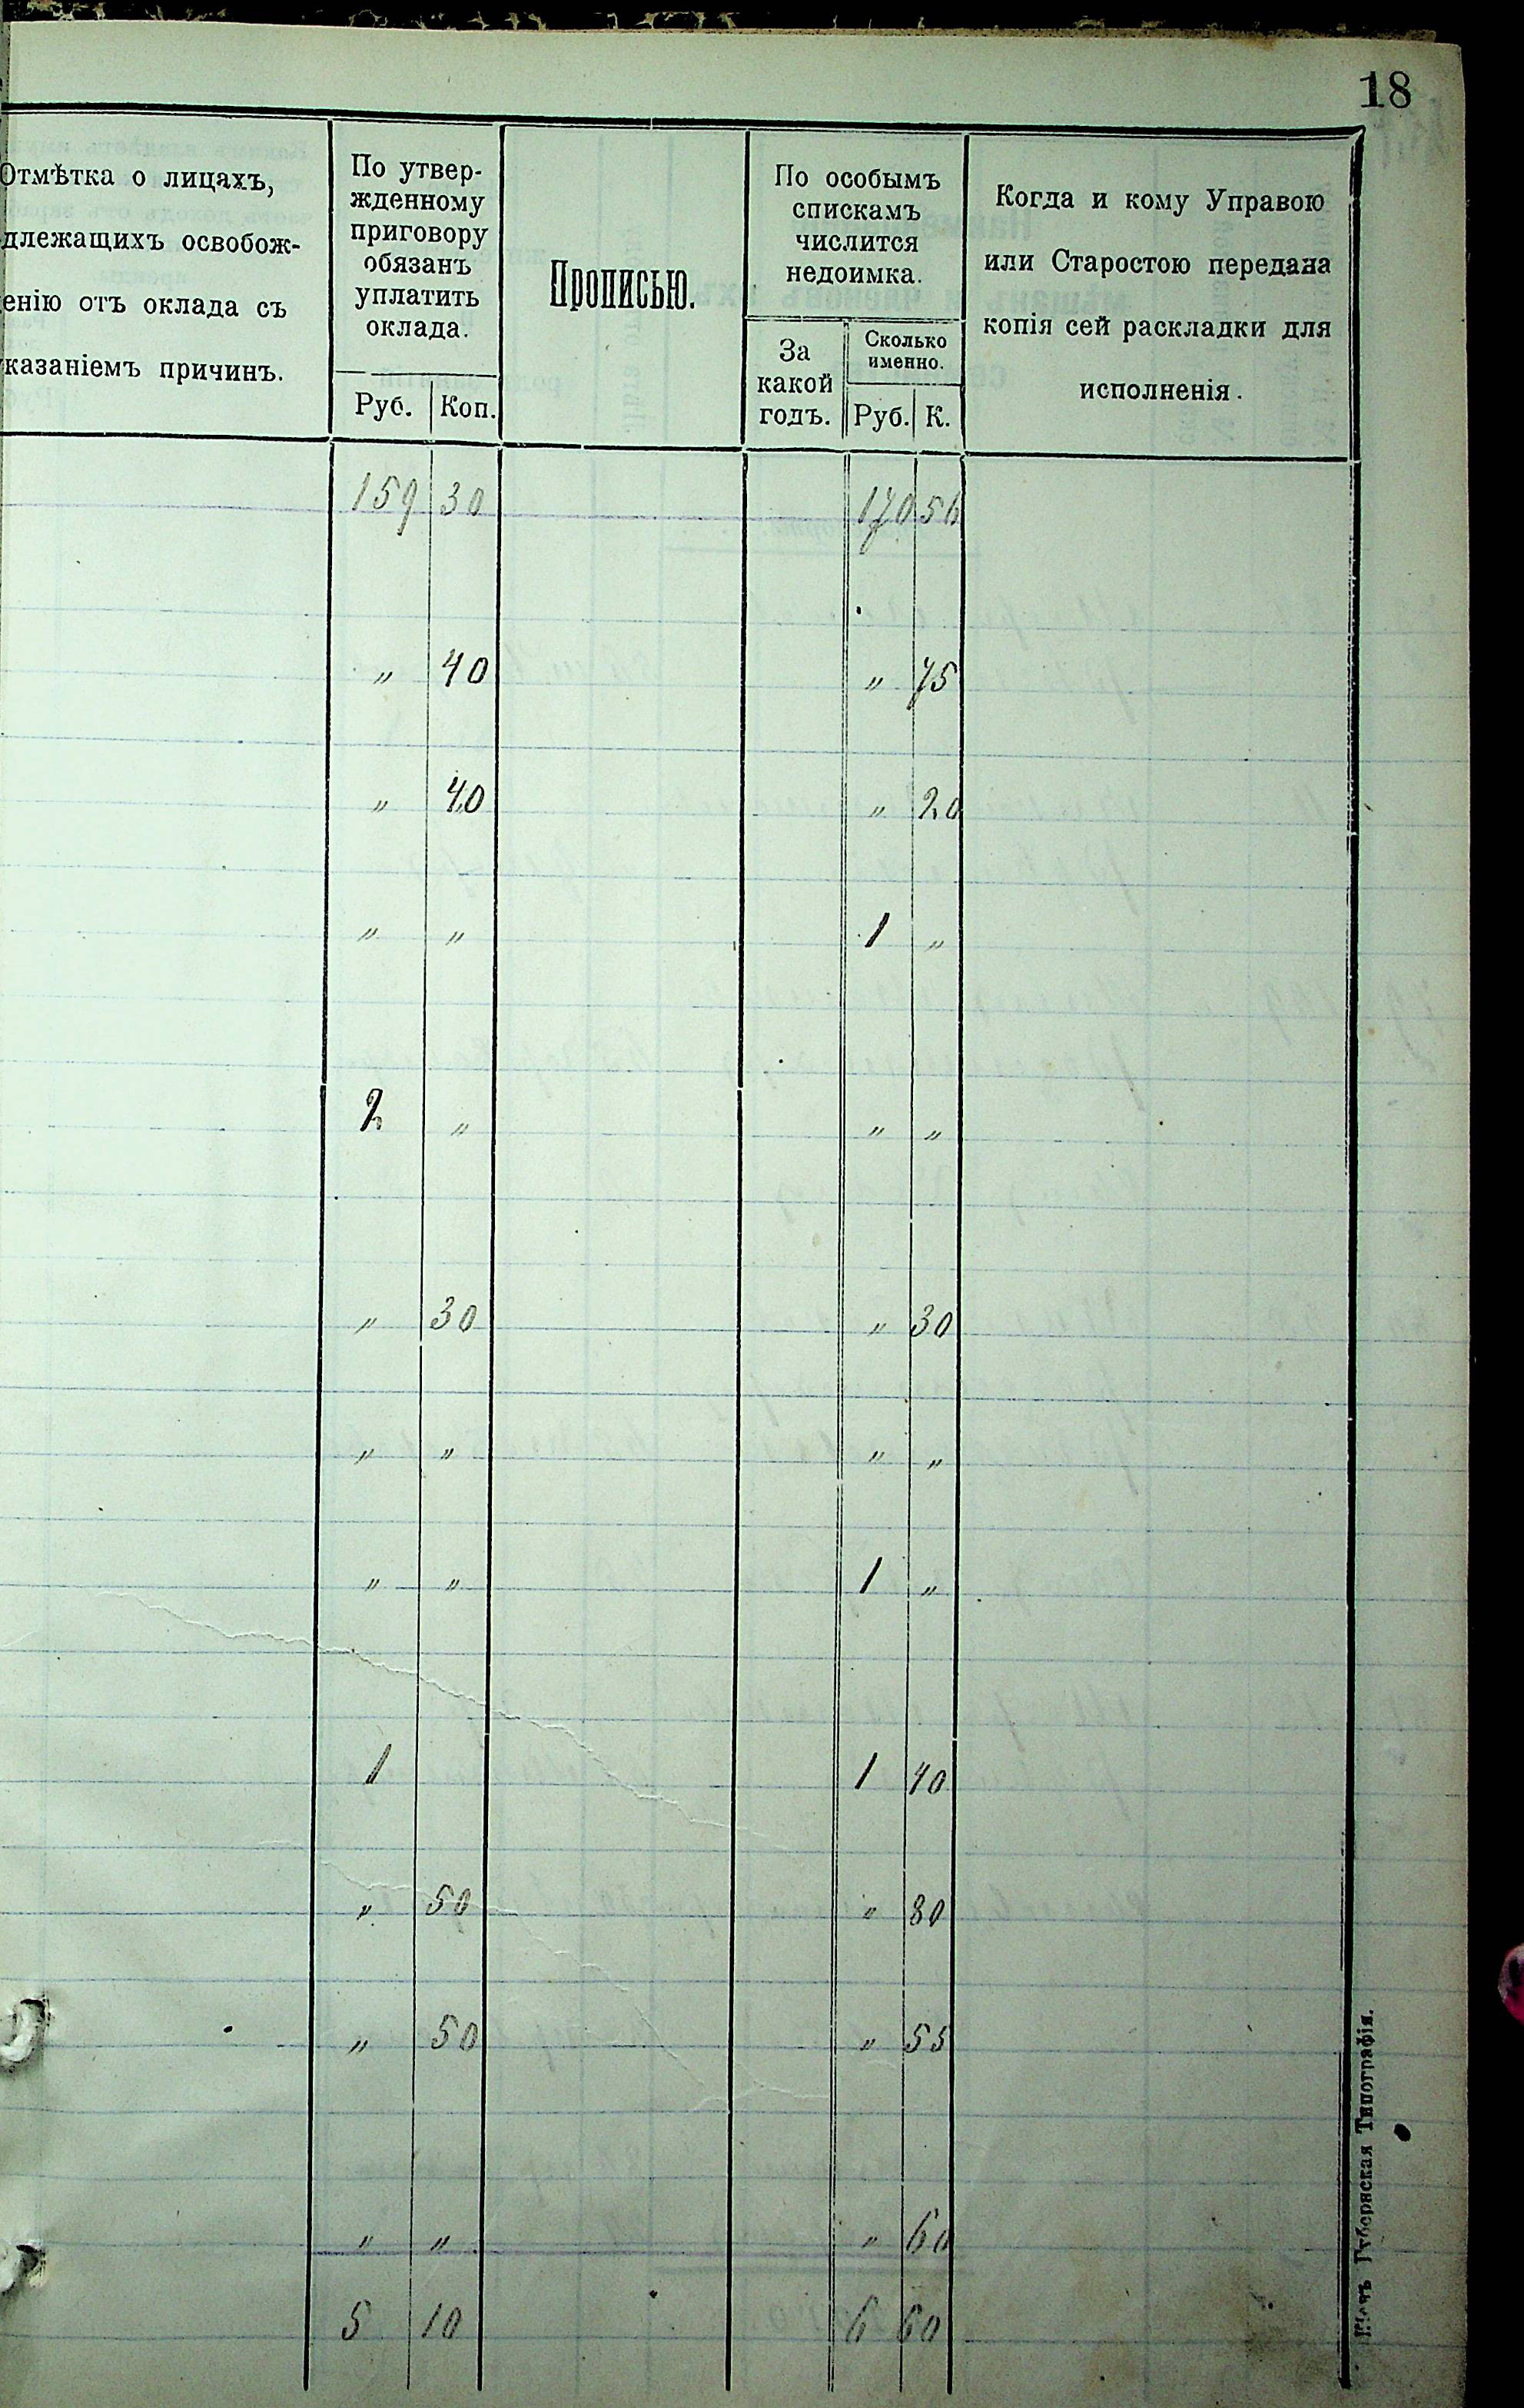 18
Отмѣтка о лицахъ,
длежащихъ освобож-
енію отъ оклада съ
казаніемъ причинъ.
По утвер-
жденному
приговору
обязанъ
уплатить
оклада.
Руб. Коп.
Прописью.
По особымъ
спискамъ
числится
недоимка.
За
какой
годъ.
Сколько
именно.
Руб. К.
Когда и кому Управою
или Старостою передана
копія сей раскладки для
исполненія.
159 30 170 56
" 40 " 75
" 40 " 20
" " 1 "
2 " " "
" 30 " 30
" " " "
" " 1 "
1 1 40
" 50 " 80
" 50 " 55
" " " 60
5 10 6 60
Кіевъ Губернская Типографія.